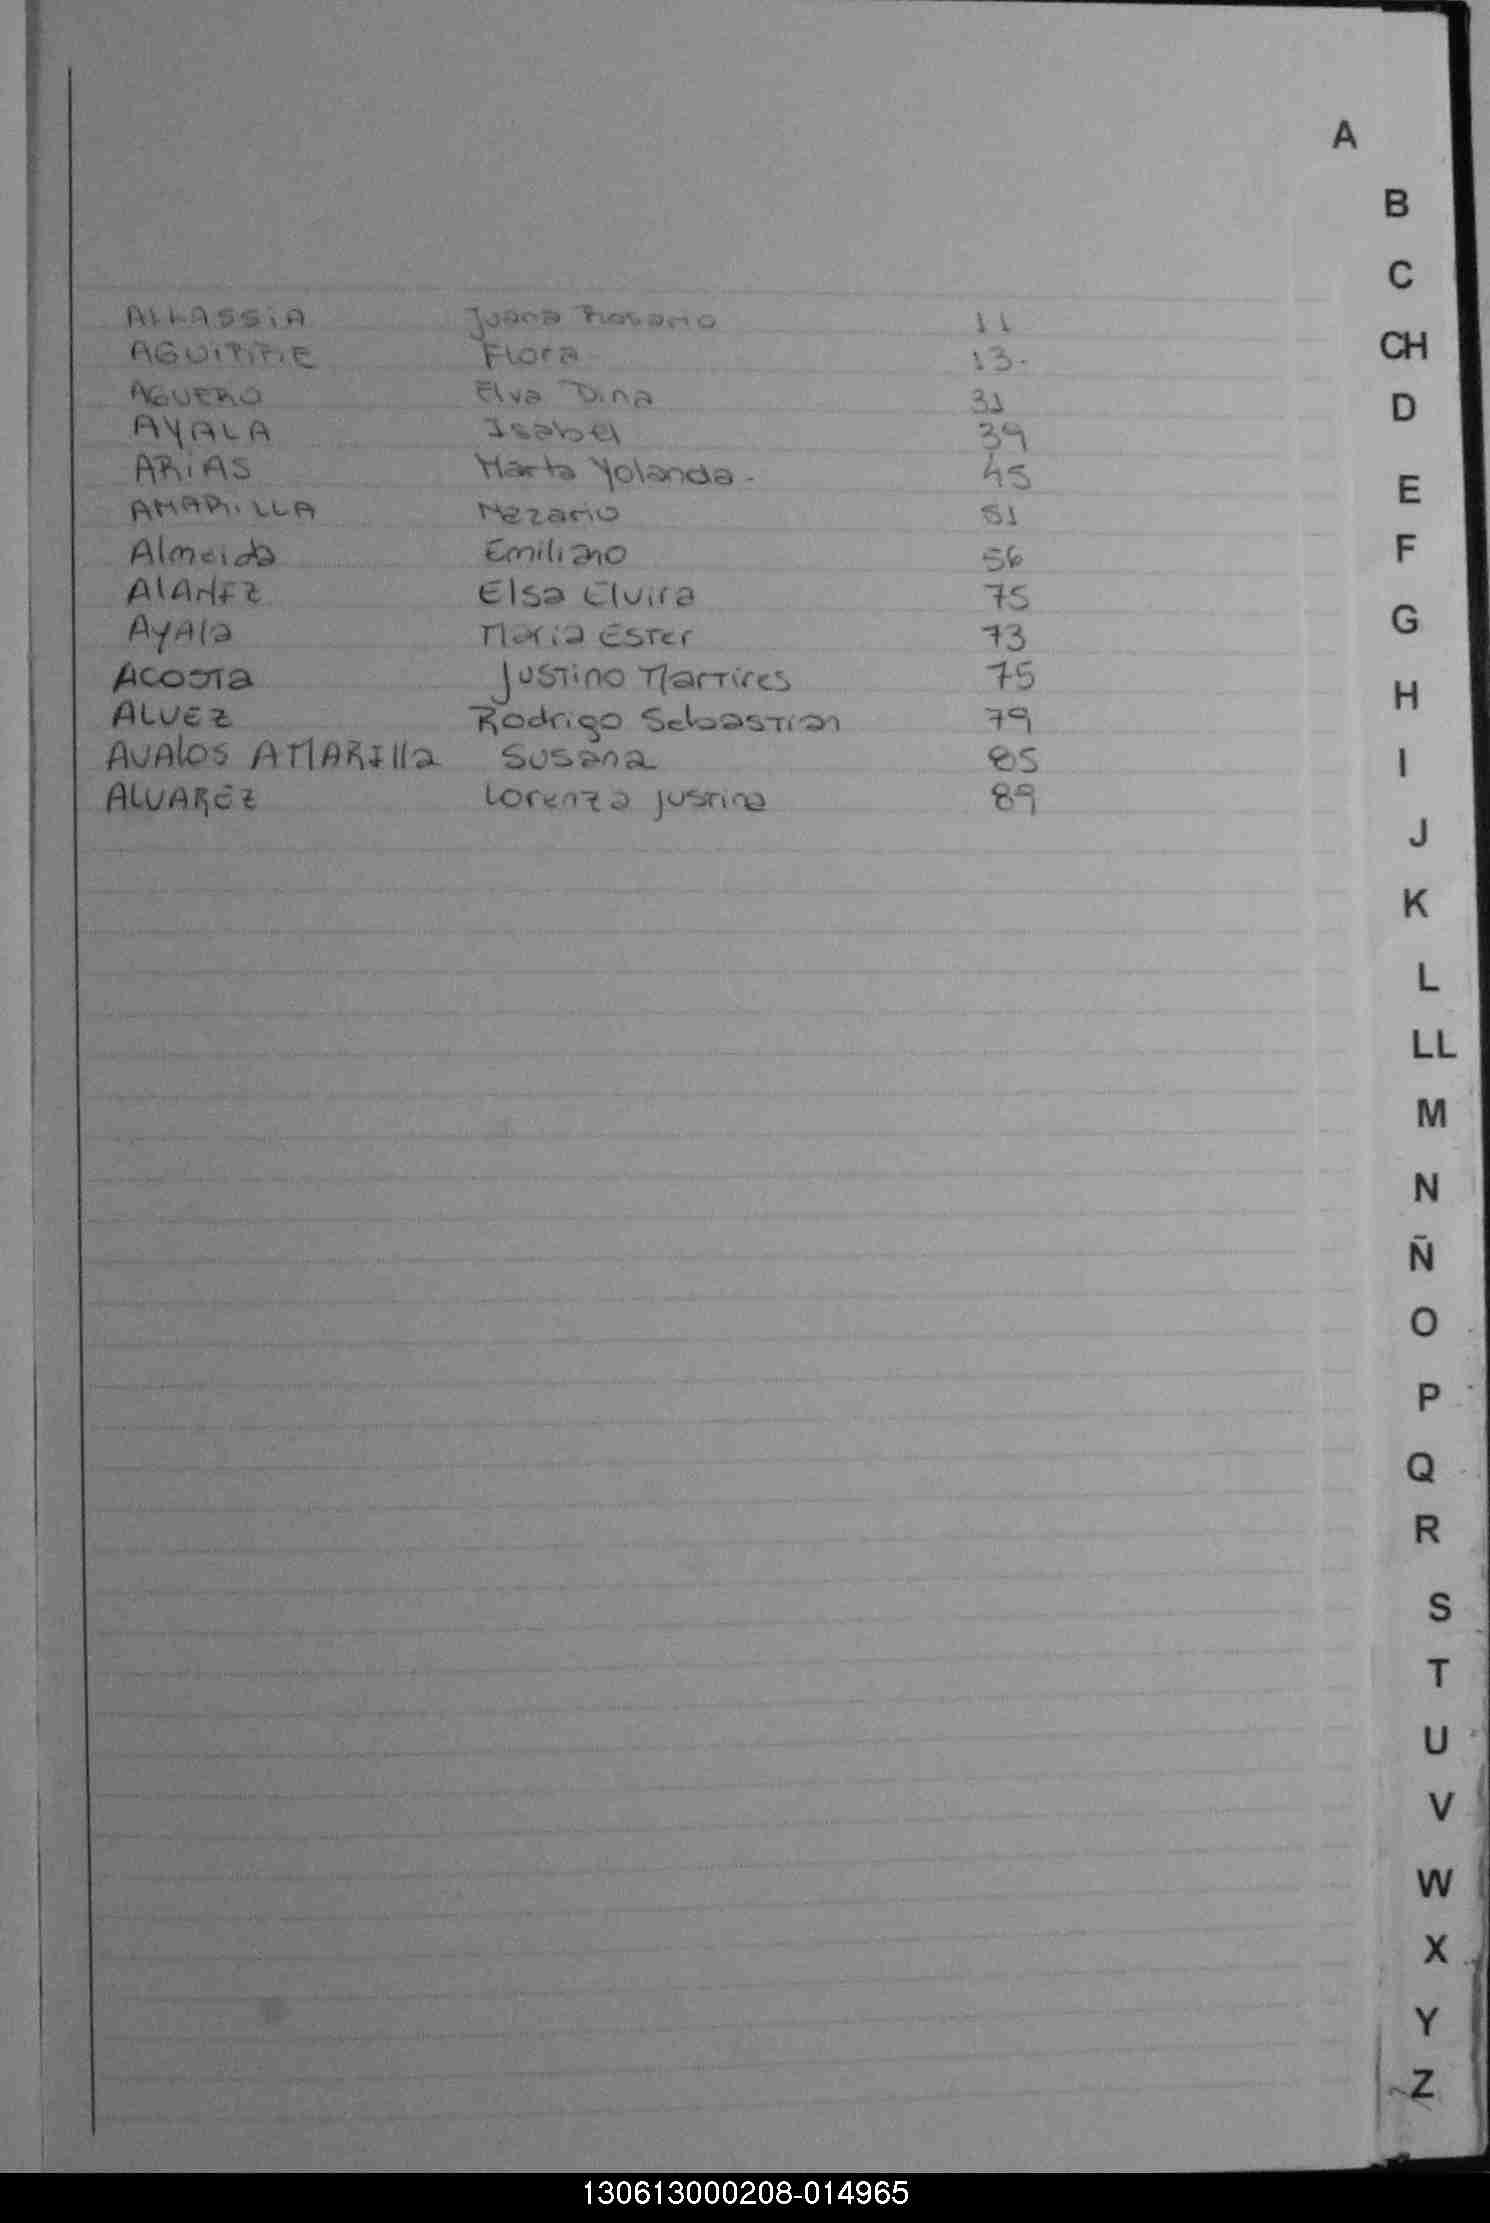 A
B
C
ALLASSiA Juana Rosario 11
CH
AGUIRRE Flora 13.
AGUERO Elva Dina 31
D
AYALA Isabel 39
ARiAS Marta Yolanda. 45
E
AMARiLLA Nezario 51
F
Almeida Emiliano 56
AlAnEz Elsa Elvira 75
G
AyAla Maria Ester 73
ACOSTa Justino Martires 75
H
ALVEZ Rodrigo Sebastian 79
AVAlOS AMARIlla Susana 85
I
ALVAREZ Lorenza justina 89
J
K
L
LL
M
N
Ñ
O
P
Q
R
S
T
U
V
W
X
Y
Z
130613000208-014965